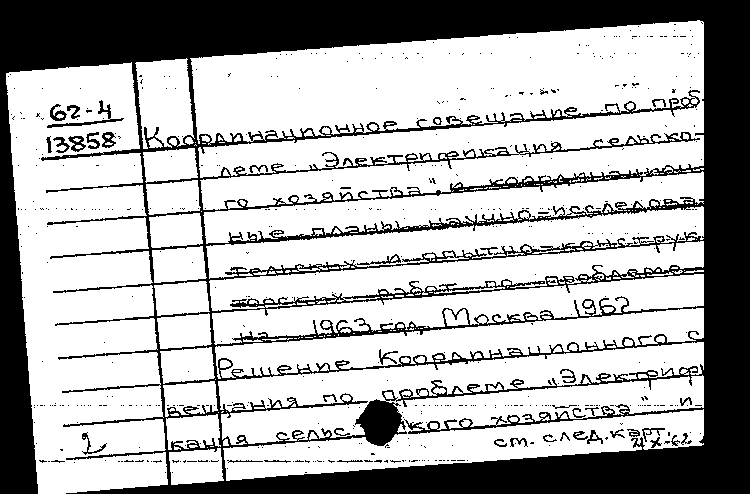 62-4
13858
Координационное совещание по проб-
леме "Электрификация сельско-
го хозяйства", и координацион-
ные планы научно-исследова-
тельских и опытно-конструк
торских работ по проблеме
на 1963 год, Москва 1962
Решение Координационного с
вещания по проблеме "Электрифи
кация сельс кого хозяйства" и
2
см. след. карт.